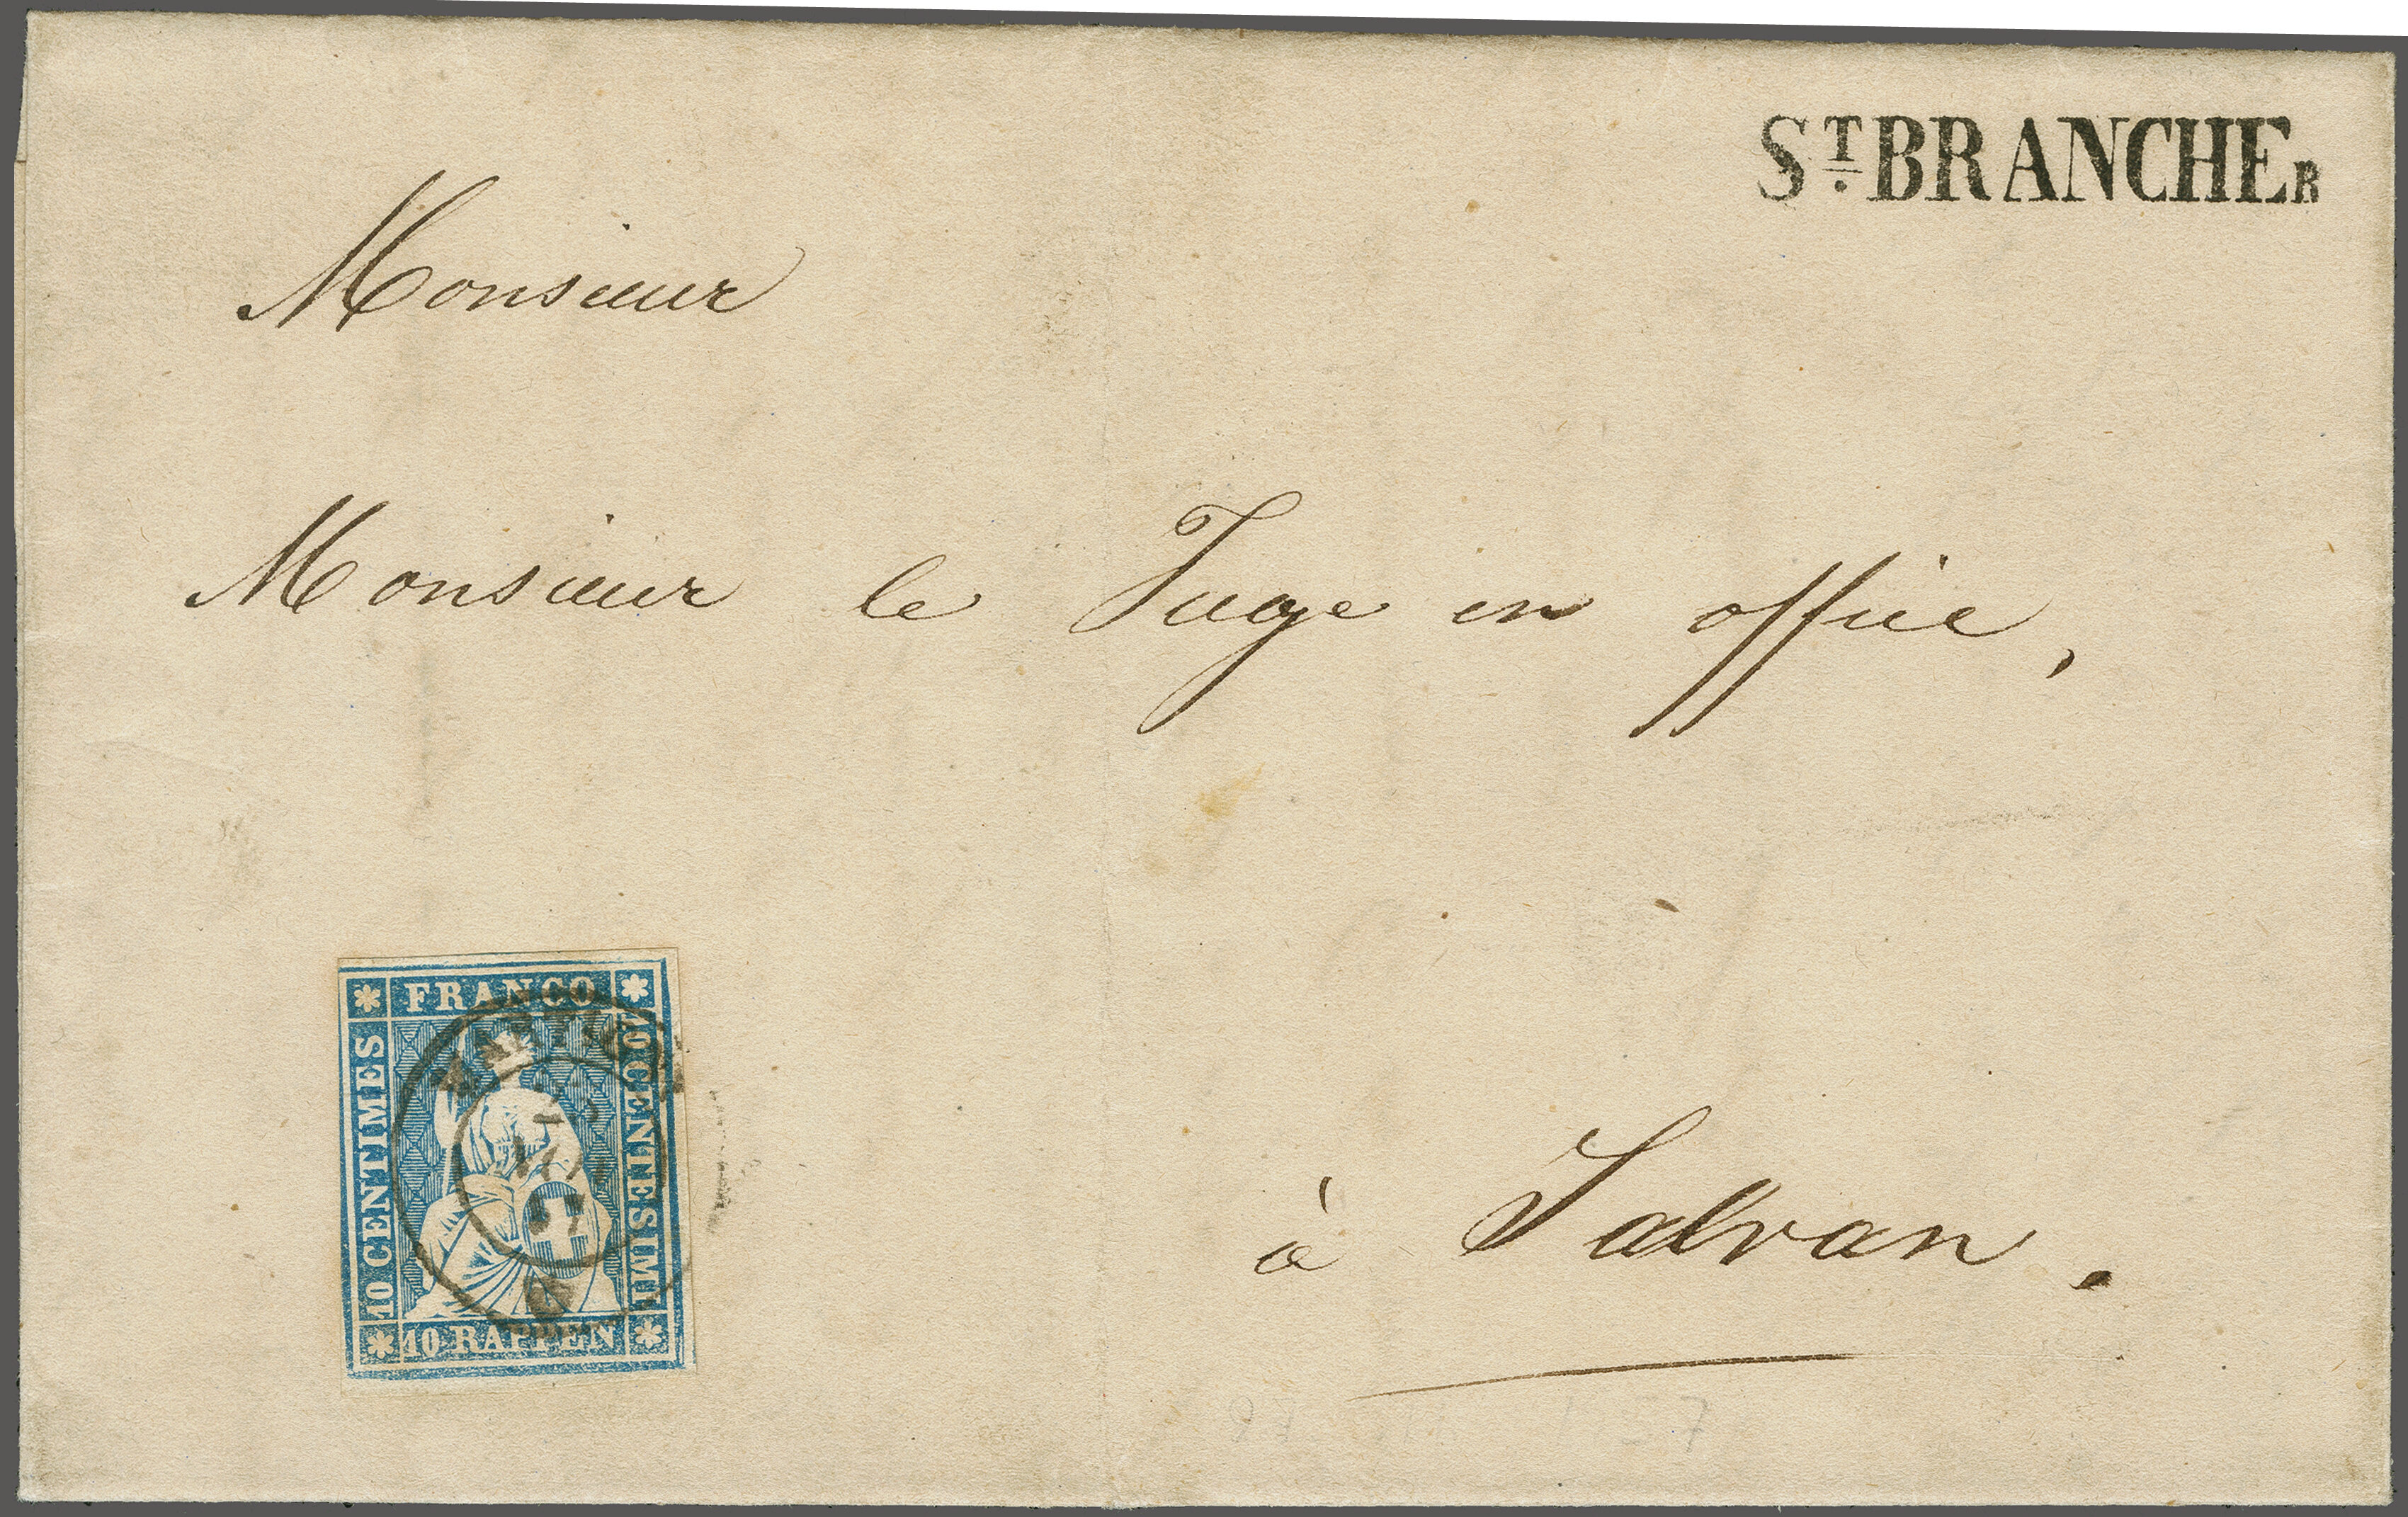 S^T. BRANCHER
Monsieur
Monsieur le Juge en office,
à Salvan.
FRANCO
10 CENTIMES
10 CENTESIMI
10 RAPPEN
MARTIGNY
NOV
57